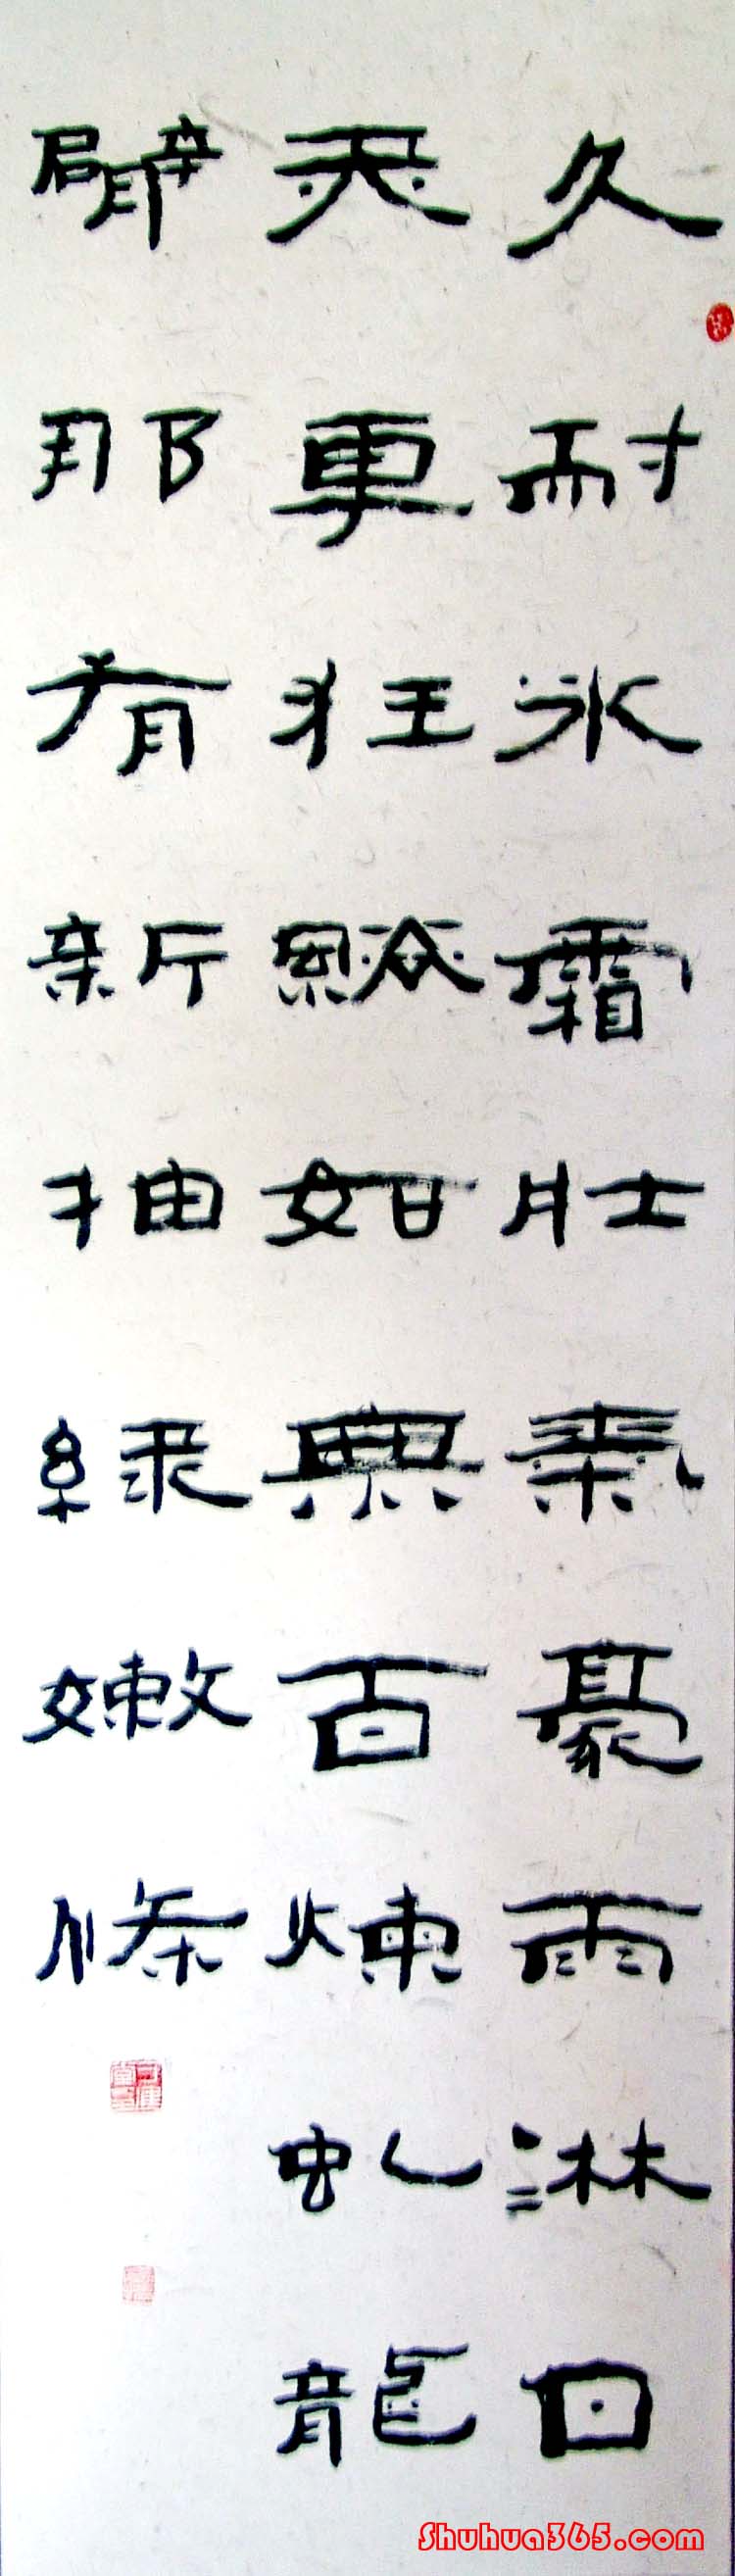 久耐冰霜壯氣豪雨淋日
更狂如無百煉虬龍
臂那有新抽綠嫩條
Shuhua365.com